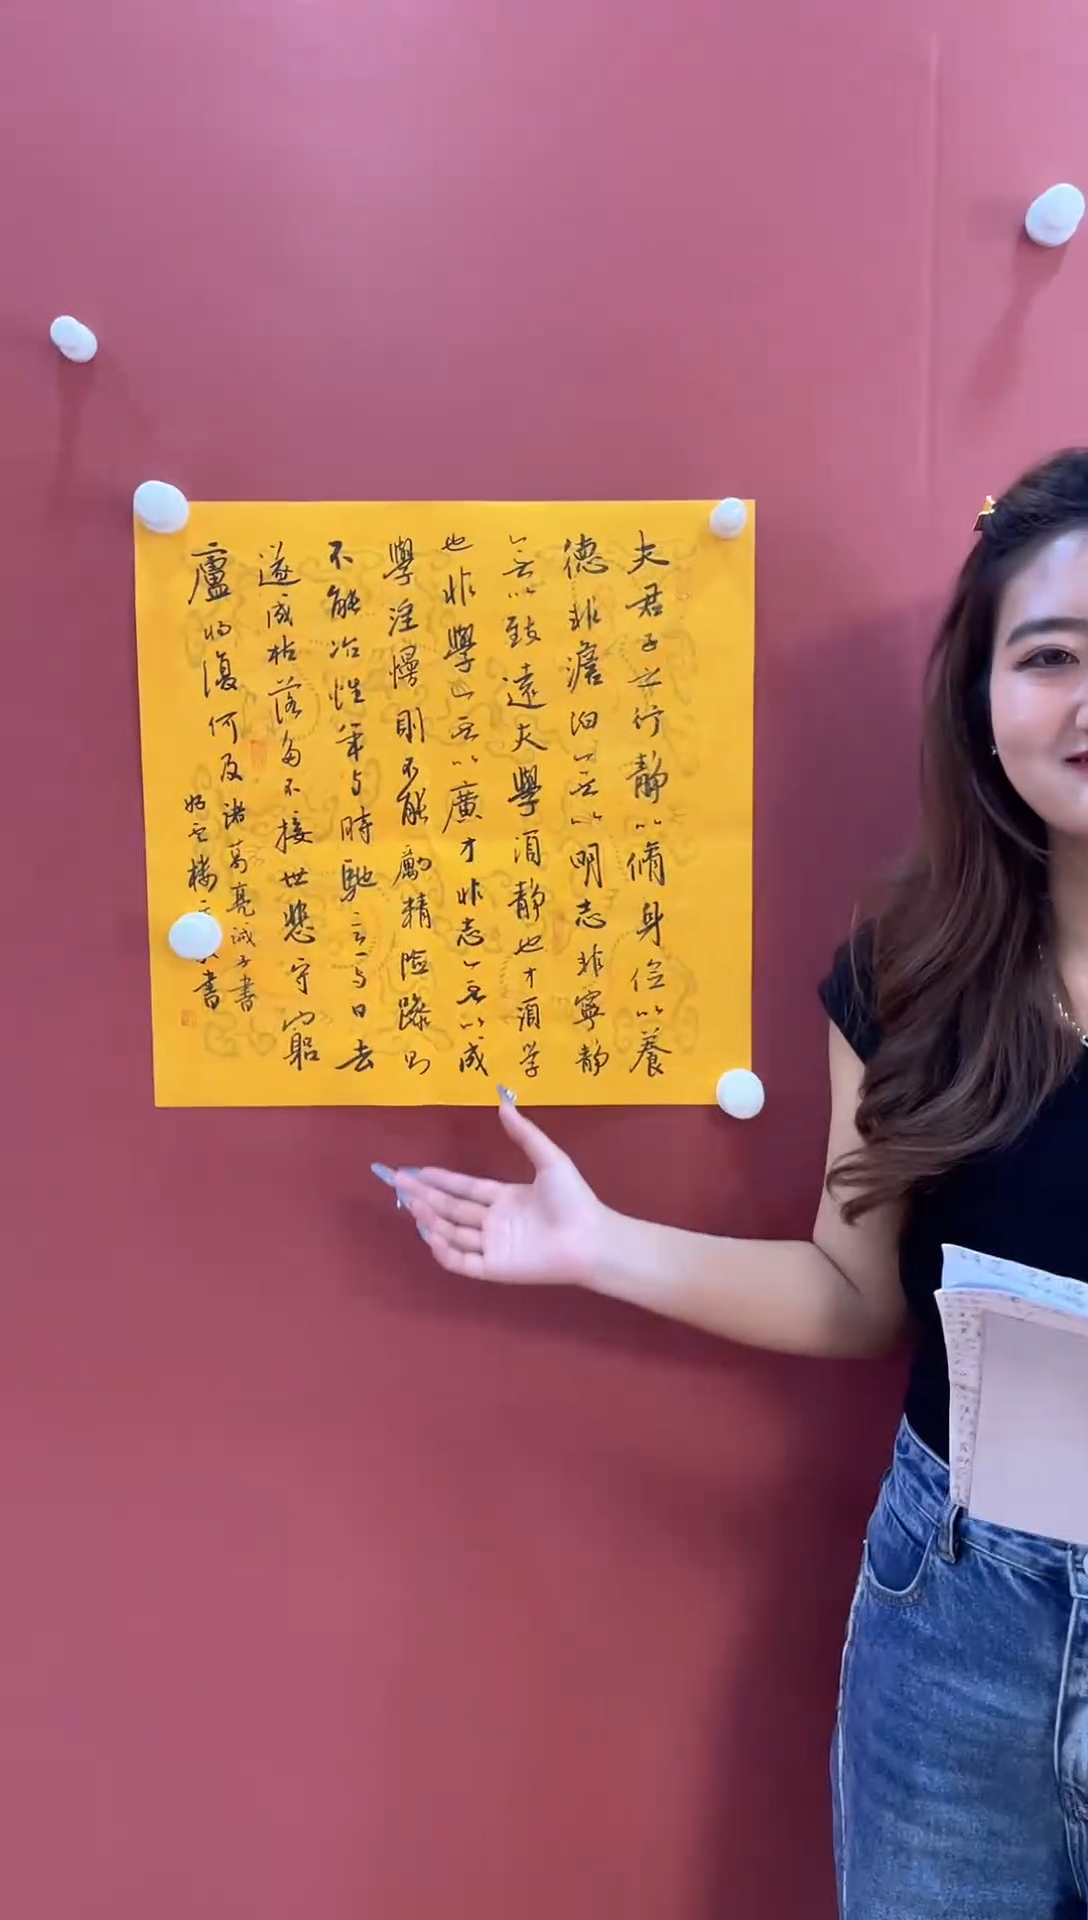 夫君子之行静以脩身俭以養
德非澹泊无以明志非寧静
无以致遠夫學須静也才須学
也非學无以廣才非志无以成
學淫慢則不能勵精險躁则
不能冶性年与時馳意与日去
遂成枯落多不接世悲守窮
廬将復何及
諸葛亮誡子書
樓
書